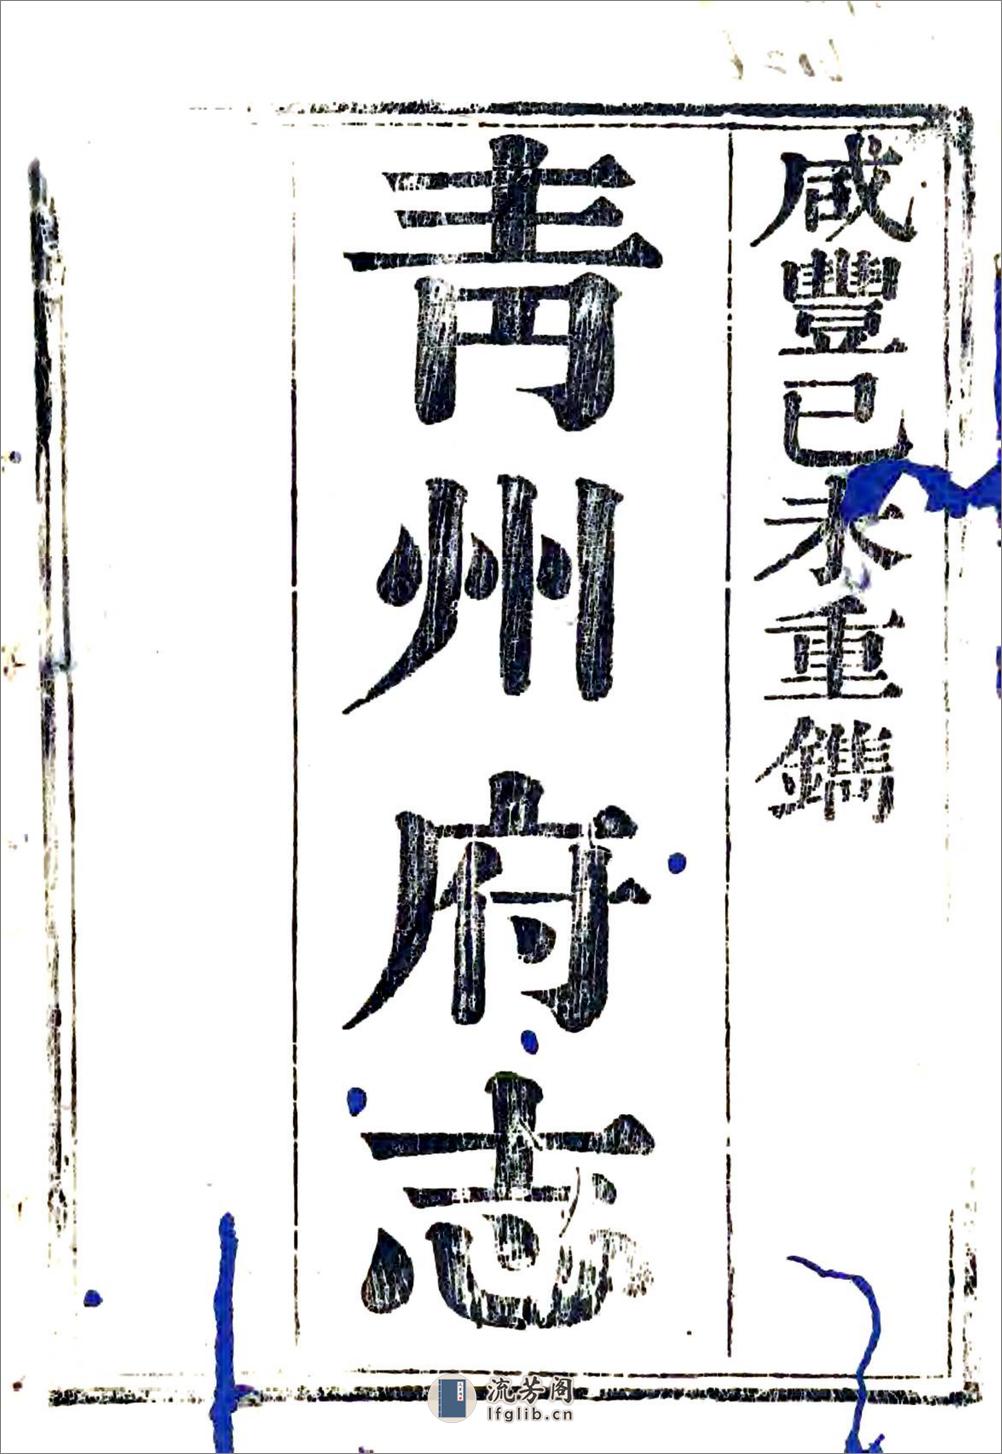 咸豐己未重鐫
青州府志
流芳阁
lfglib.cn